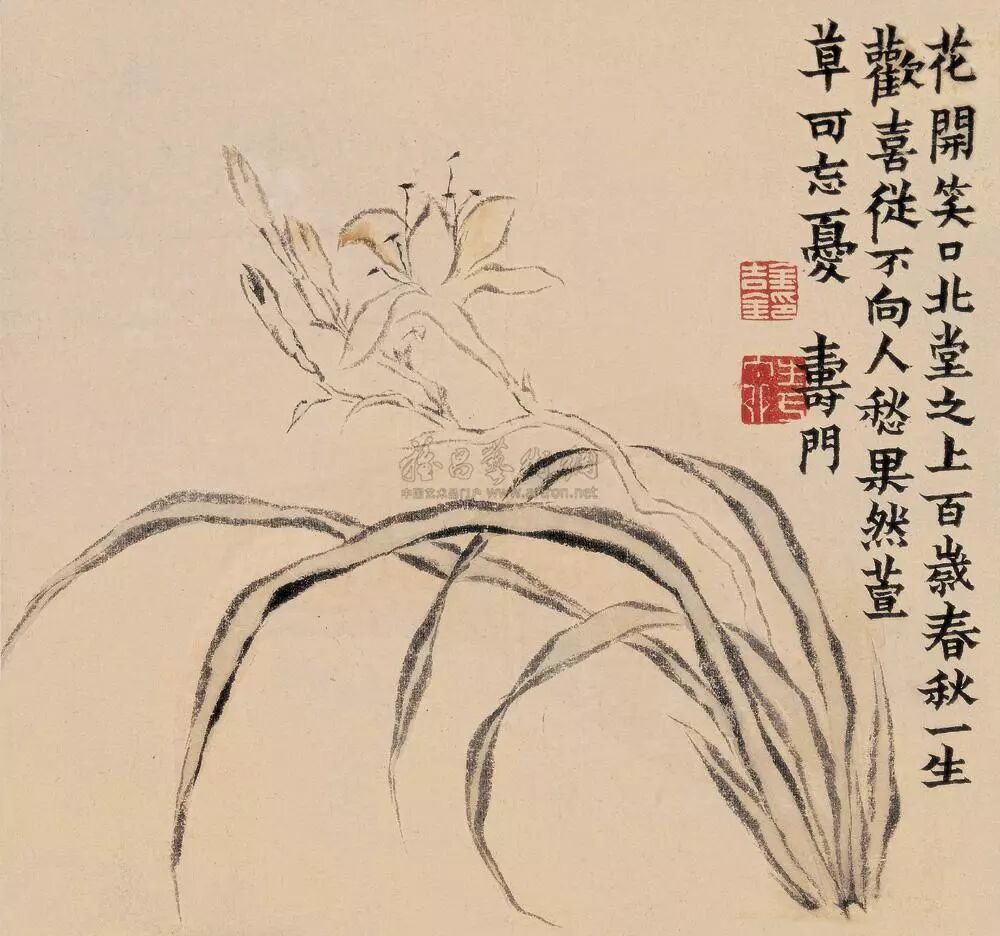 花開笑口北堂之上百歲春秋一生
歡喜從不向人愁果然萱
草可忘憂 壽門
金吉金印
中国艺术品门户 www.artron.net